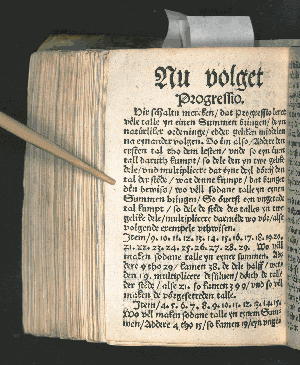 Nu volget
Progressio.
Hir schaltu mercken / dat Progressio leret
vele talle yn einen Summen bringen / de yn
natürliker ordeninge / edder geliken middelen
na eynander volgen. Do ön also / Addere den
ersten tal tho dem lesten / und so eyn
tall daruth kumpt / so dele den yn twe gelike
dele / und multiplicere dat eyne deel dorch den
tal der stede / wat denne kumpt / dat bringet
dön bewiss / wo vell sodane talle yn eynen
Summen bringen / So överst eyn ungerade
tal kumpt / so dele de stede des talles yn twe
gelike dele / multiplicere darmede wo vör / alse
volgende exempele uthwisen.
Item / 9. 10. 11. 12. 13. 14. 15. 16. 17. 18. 19. 20.
21. 22. 23. 24. 25. 26. 27. 28. 29. Wo vell
maken sodane talle yn eyner summen. Ad=
dere 9 tho 29 / kamen 38. de dele halff / wer=
den 19. multiplicere desülven / dorch de tall
der stede / alse 21. so kamen 399 / und so vell
maken de vörgesetteden talle.
Item / 4. 5. 6. 7. 8. 9. 10. 11. 12. 13. 14. 15.
Wo vell maken sodane talle yn eynem Sum=
men / Addere 4 tho 15 / so kamen 19 / eyn unge=